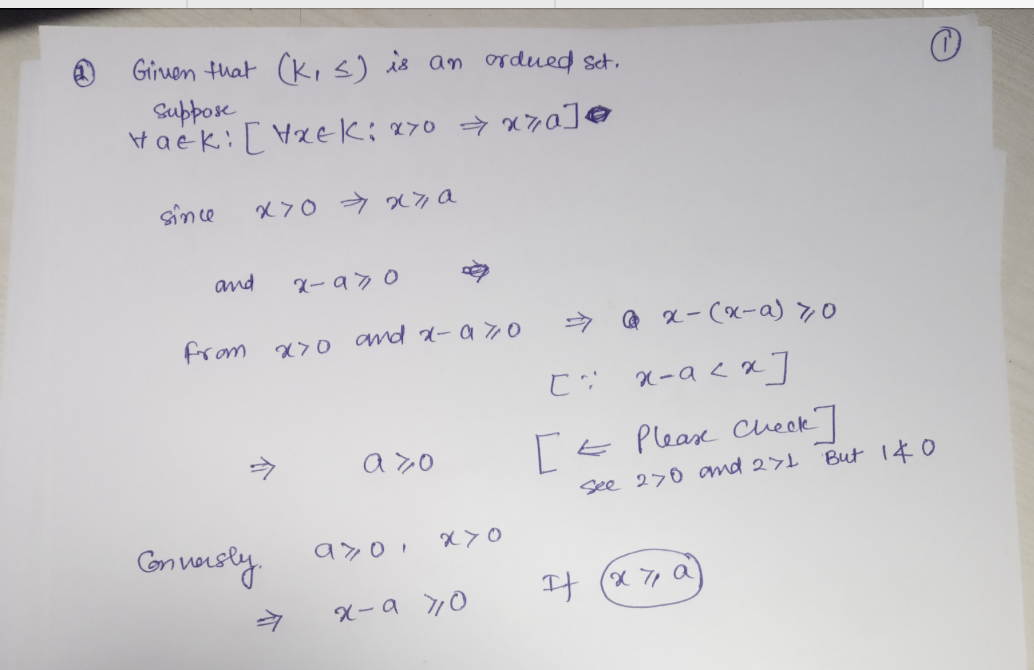 ①
② Given that (K, ≤) is an ordered set.
Suppose
∀ a∈K: [ ∀x∈K: x>0 ⇒ x⩾a]
since x>0 ⇒ x⩾a
and x-a⩾0
from x>0 and x-a⩾0 ⇒ x-(x-a)⩾0
[∵ x-a<x]
⇒ a⩾0 [ ⇐ Please Check]
See 2>0 and 2>1 But 1≰0
Conversly. a⩾0, x>0
⇒ x-a ⩾0 If x⩾a